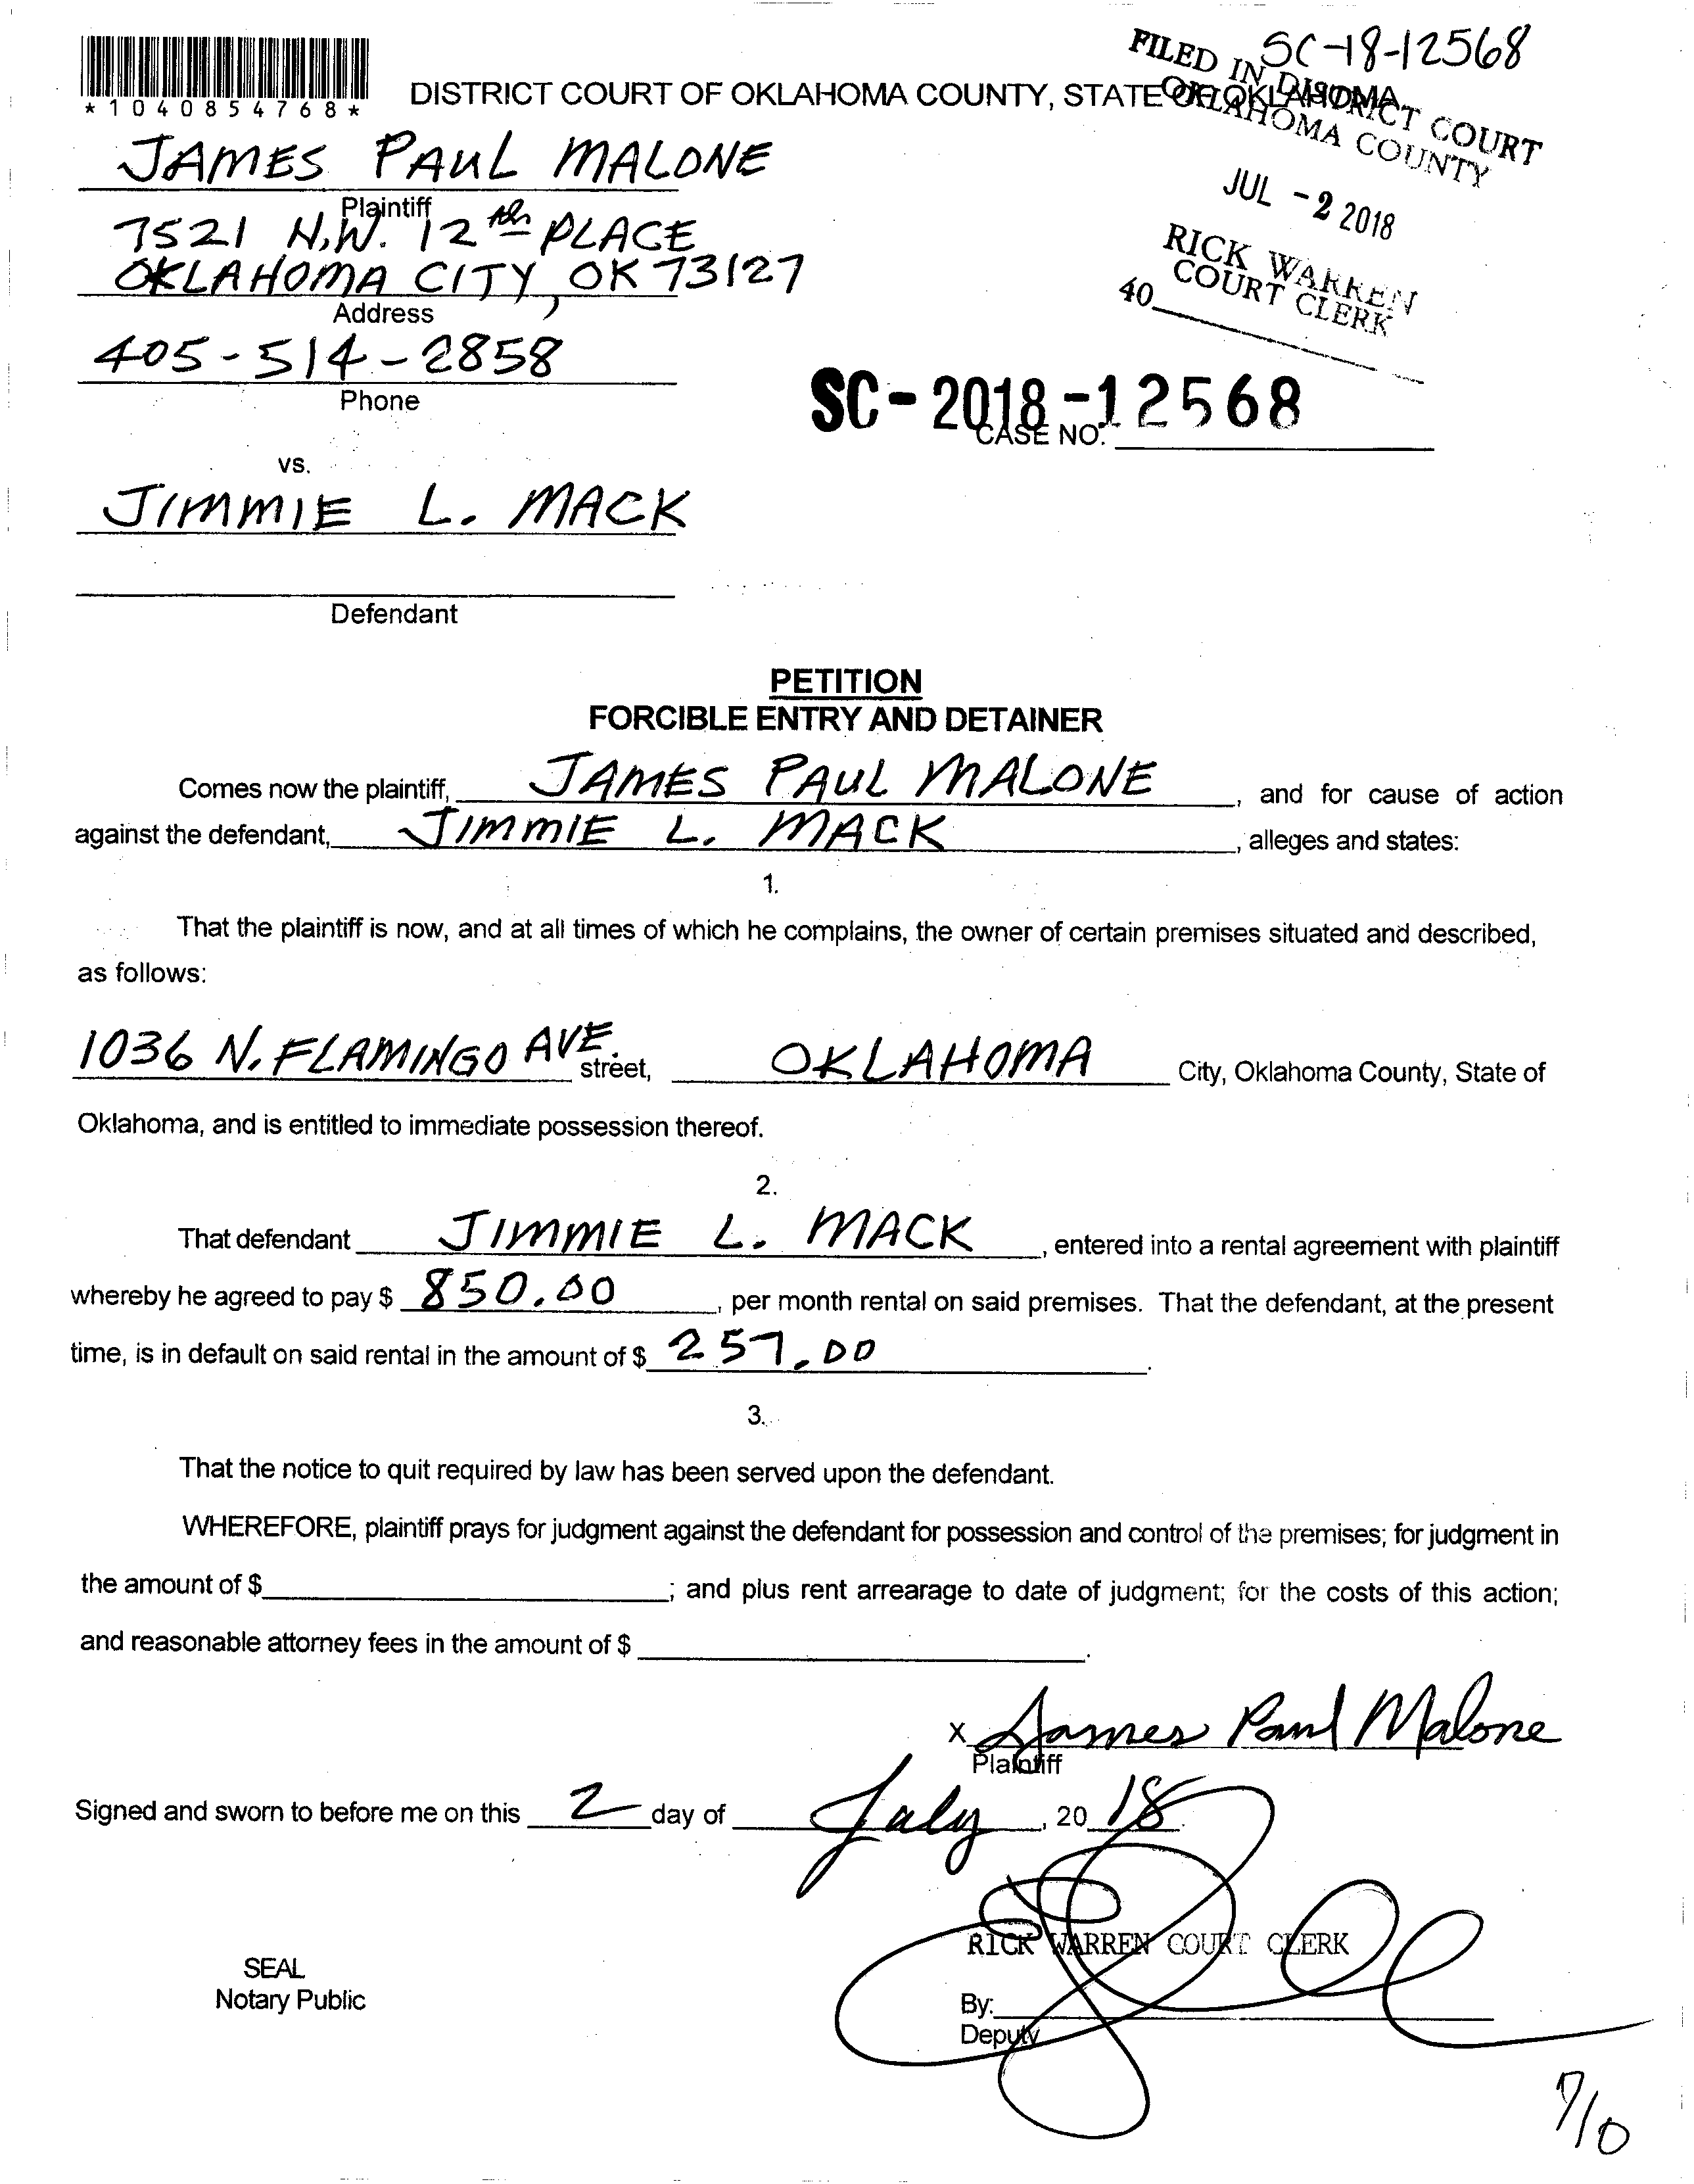 SC-18-12568
*1040854768*
DISTRICT COURT OF OKLAHOMA COUNTY, STATE OF OKLAHOMA
FILED IN DISTRICT COURT
OKLAHOMA COUNTY
JUL - 2 2018
RICK WARREN
COURT CLERK
40
JAMES PAUL MALONE
Plaintiff
7521 N.W. 12th PLACE
OKLAHOMA CITY, OK 73127
Address
405-514-2858
Phone
SC-2018-12568
CASE NO.
vs.
JIMMIE L. MACK
Defendant
PETITION
FORCIBLE ENTRY AND DETAINER
Comes now the plaintiff, JAMES PAUL MALONE, and for cause of action
against the defendant, JIMMIE L. MACK, alleges and states:
1.
That the plaintiff is now, and at all times of which he complains, the owner of certain premises situated and described,
as follows:
1036 N. FLAMINGO AVE. street, OKLAHOMA City, Oklahoma County, State of
Oklahoma, and is entitled to immediate possession thereof.
2.
That defendant JIMMIE L. MACK, entered into a rental agreement with plaintiff
whereby he agreed to pay $ 850.00, per month rental on said premises. That the defendant, at the present
time, is in default on said rental in the amount of $ 257.00.
3.
That the notice to quit required by law has been served upon the defendant.
WHEREFORE, plaintiff prays for judgment against the defendant for possession and control of the premises; for judgment in
the amount of $ ; and plus rent arrearage to date of judgment; for the costs of this action;
and reasonable attorney fees in the amount of $ .
X James Paul Malone
Plaintiff
Signed and sworn to before me on this 2 day of July, 20 18.
RICK WARREN COURT CLERK
SEAL
Notary Public
By:
Deputy
7/10